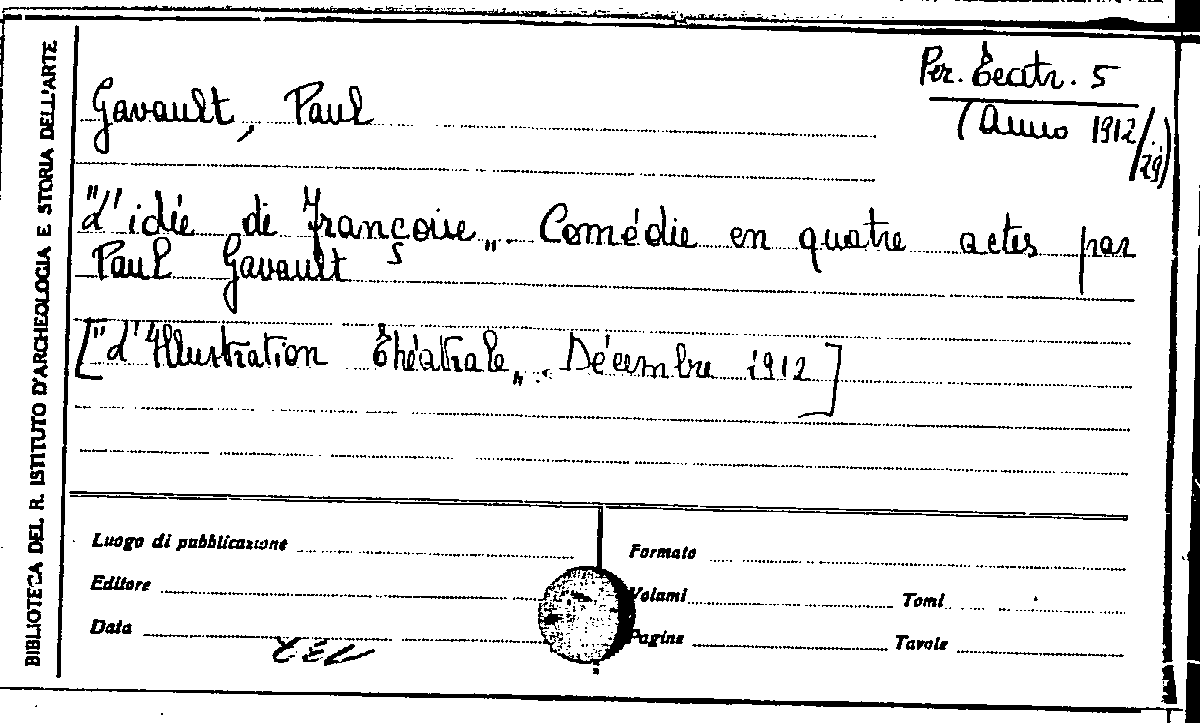 BIBLIOTECA DEL R. ISTITUTO D'ARCHEOLOGIA E STORIA DELL'ARTE
Per. Teatr. 5
(Anno 1912/29)
Gavault, Paul
"L'idée de Françoise„. Comédie en quatre actes par
Paul Gavault
["L'Illustration Théatrale„. Décembre 1912]
Luogo di pubblicazione
Formato
Editore
Volumi Tomi
Data
Pagine Tavole